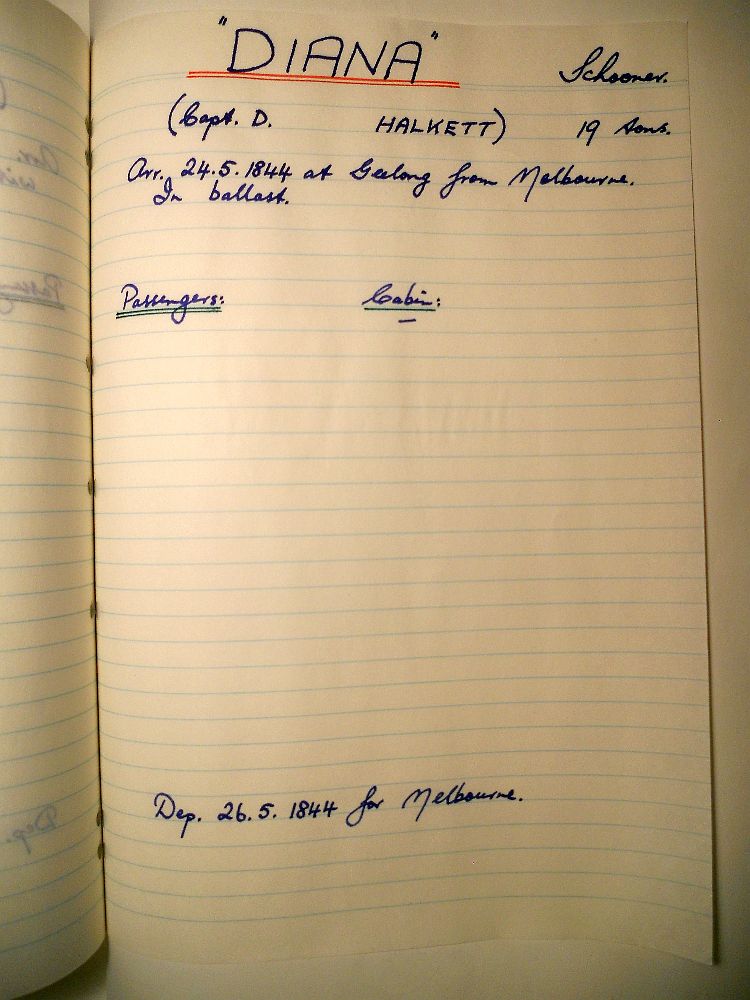 "DIANA" Schooner.
(Capt. D. HALKETT) 19 tons.
Arr. 24.5.1844 at Geelong from Melbourne.
In ballast.
Passengers: Cabin:
–
Dep. 26.5.1844 for Melbourne.